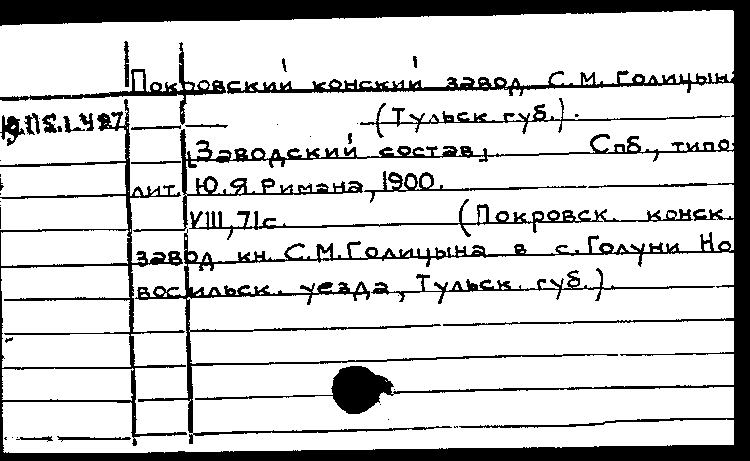 Покровский конский завод С.М. Голицына
(Тульск. губ.).
[Заводский состав] Спб., типо-
лит. Ю.Я. Римана, 1900.
VIII, 71 с. (Покровск. конск.
завод кн. С.М. Голицына в с. Голуни Но
восильск. уезда, Тульск. губ.).